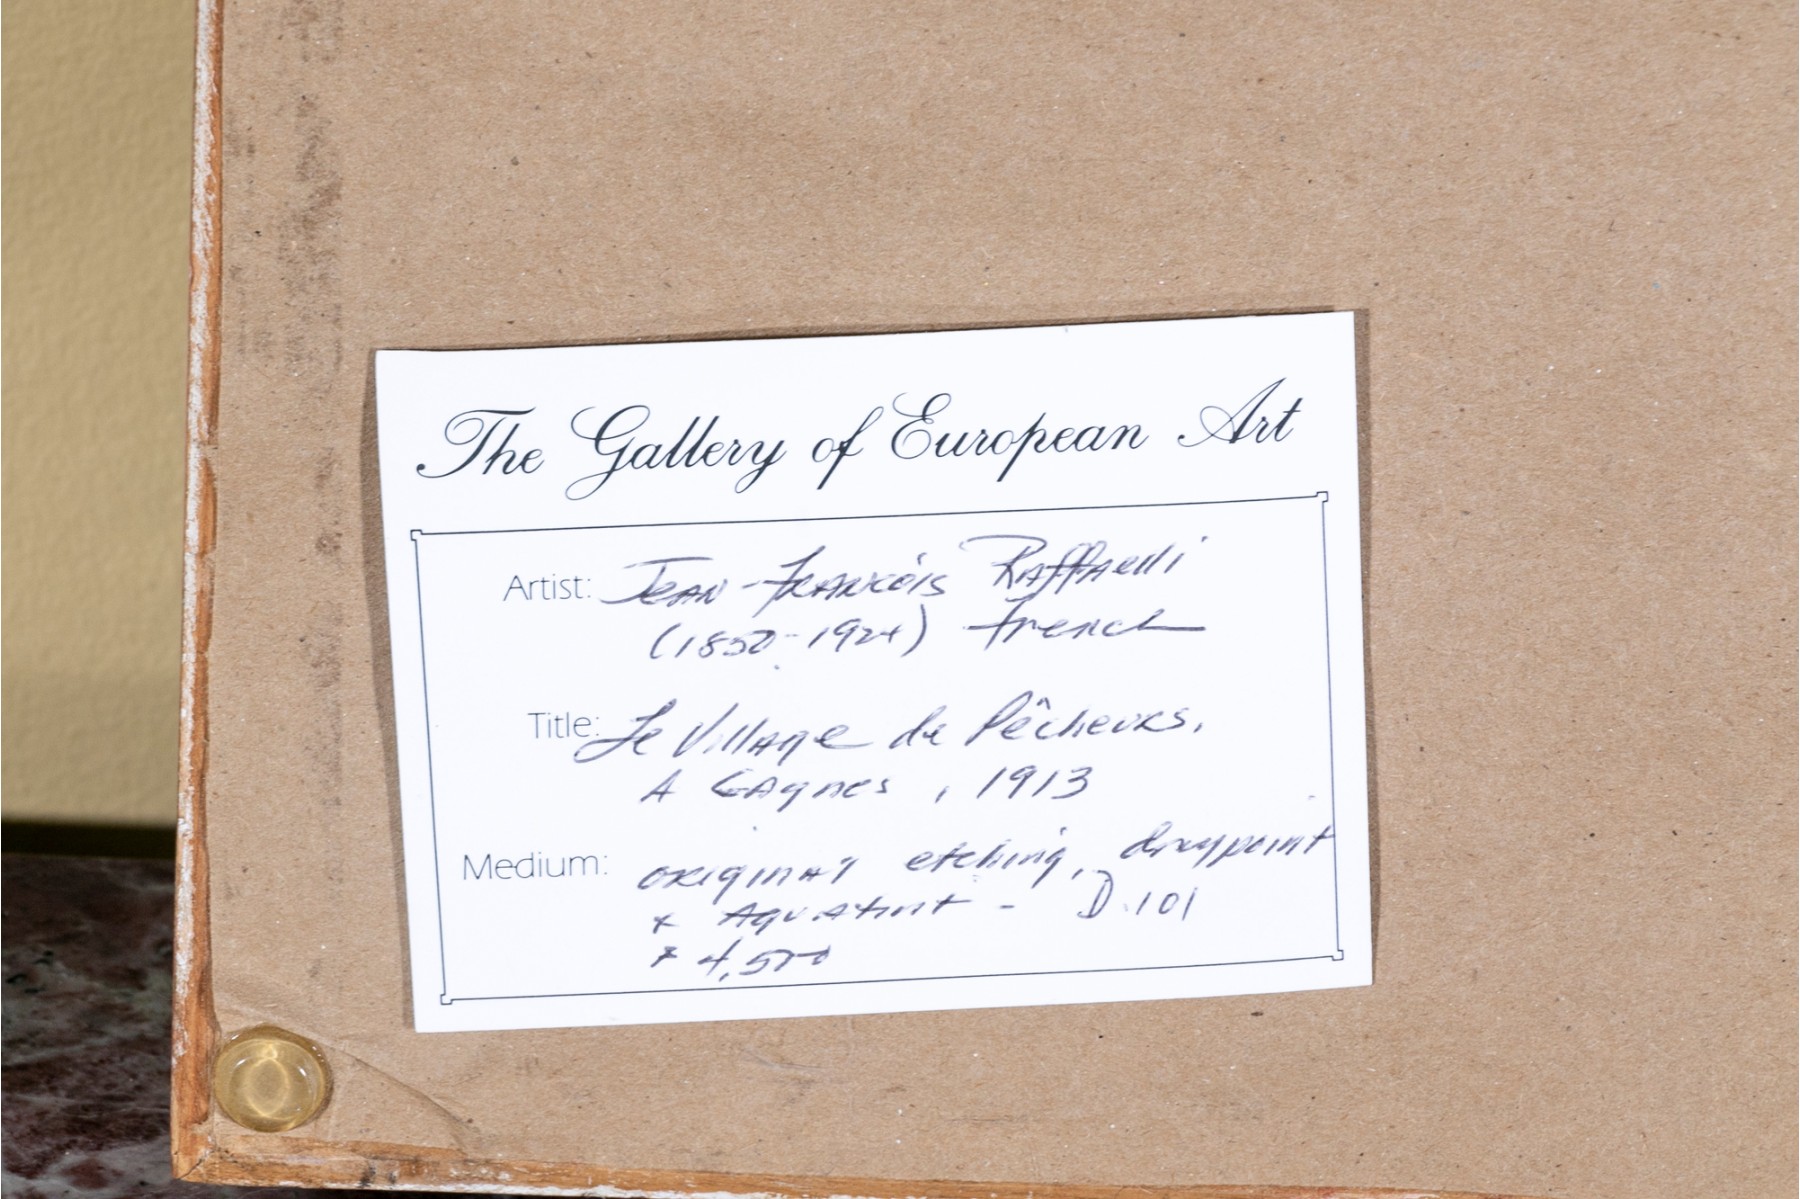 The Gallery of European Art
Artist: Jean-François Raffaelli
(1850-1924) French
Title: Le Village de Pêcheurs,
A Cagnes, 1913
Medium: original etching, drypoint
+ Aquatint - D.101
4,500